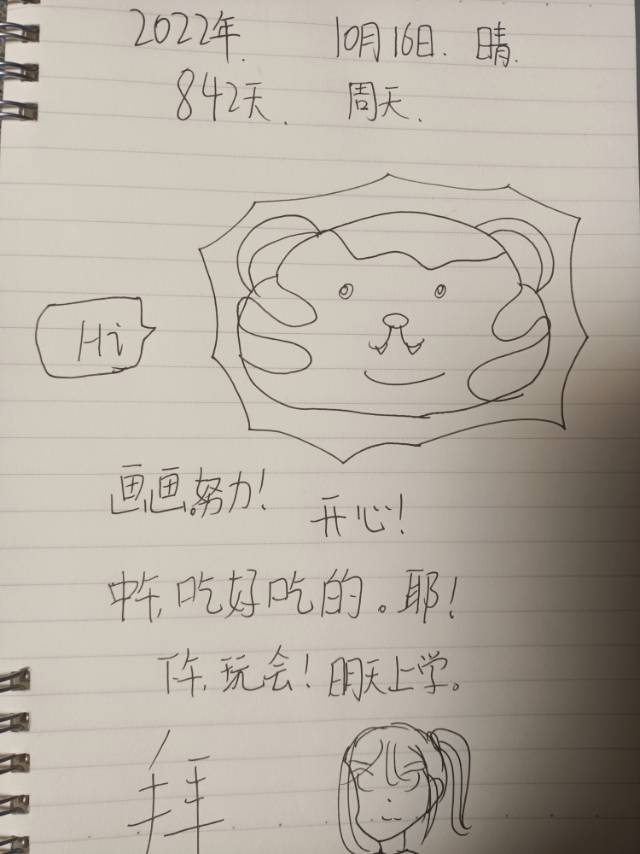 2022年. 10月16日. 晴.
842天. 周天.
Hi
画画努力! 开心!
中午,吃好吃的。耶!
下午,玩会!明天上学。
拜